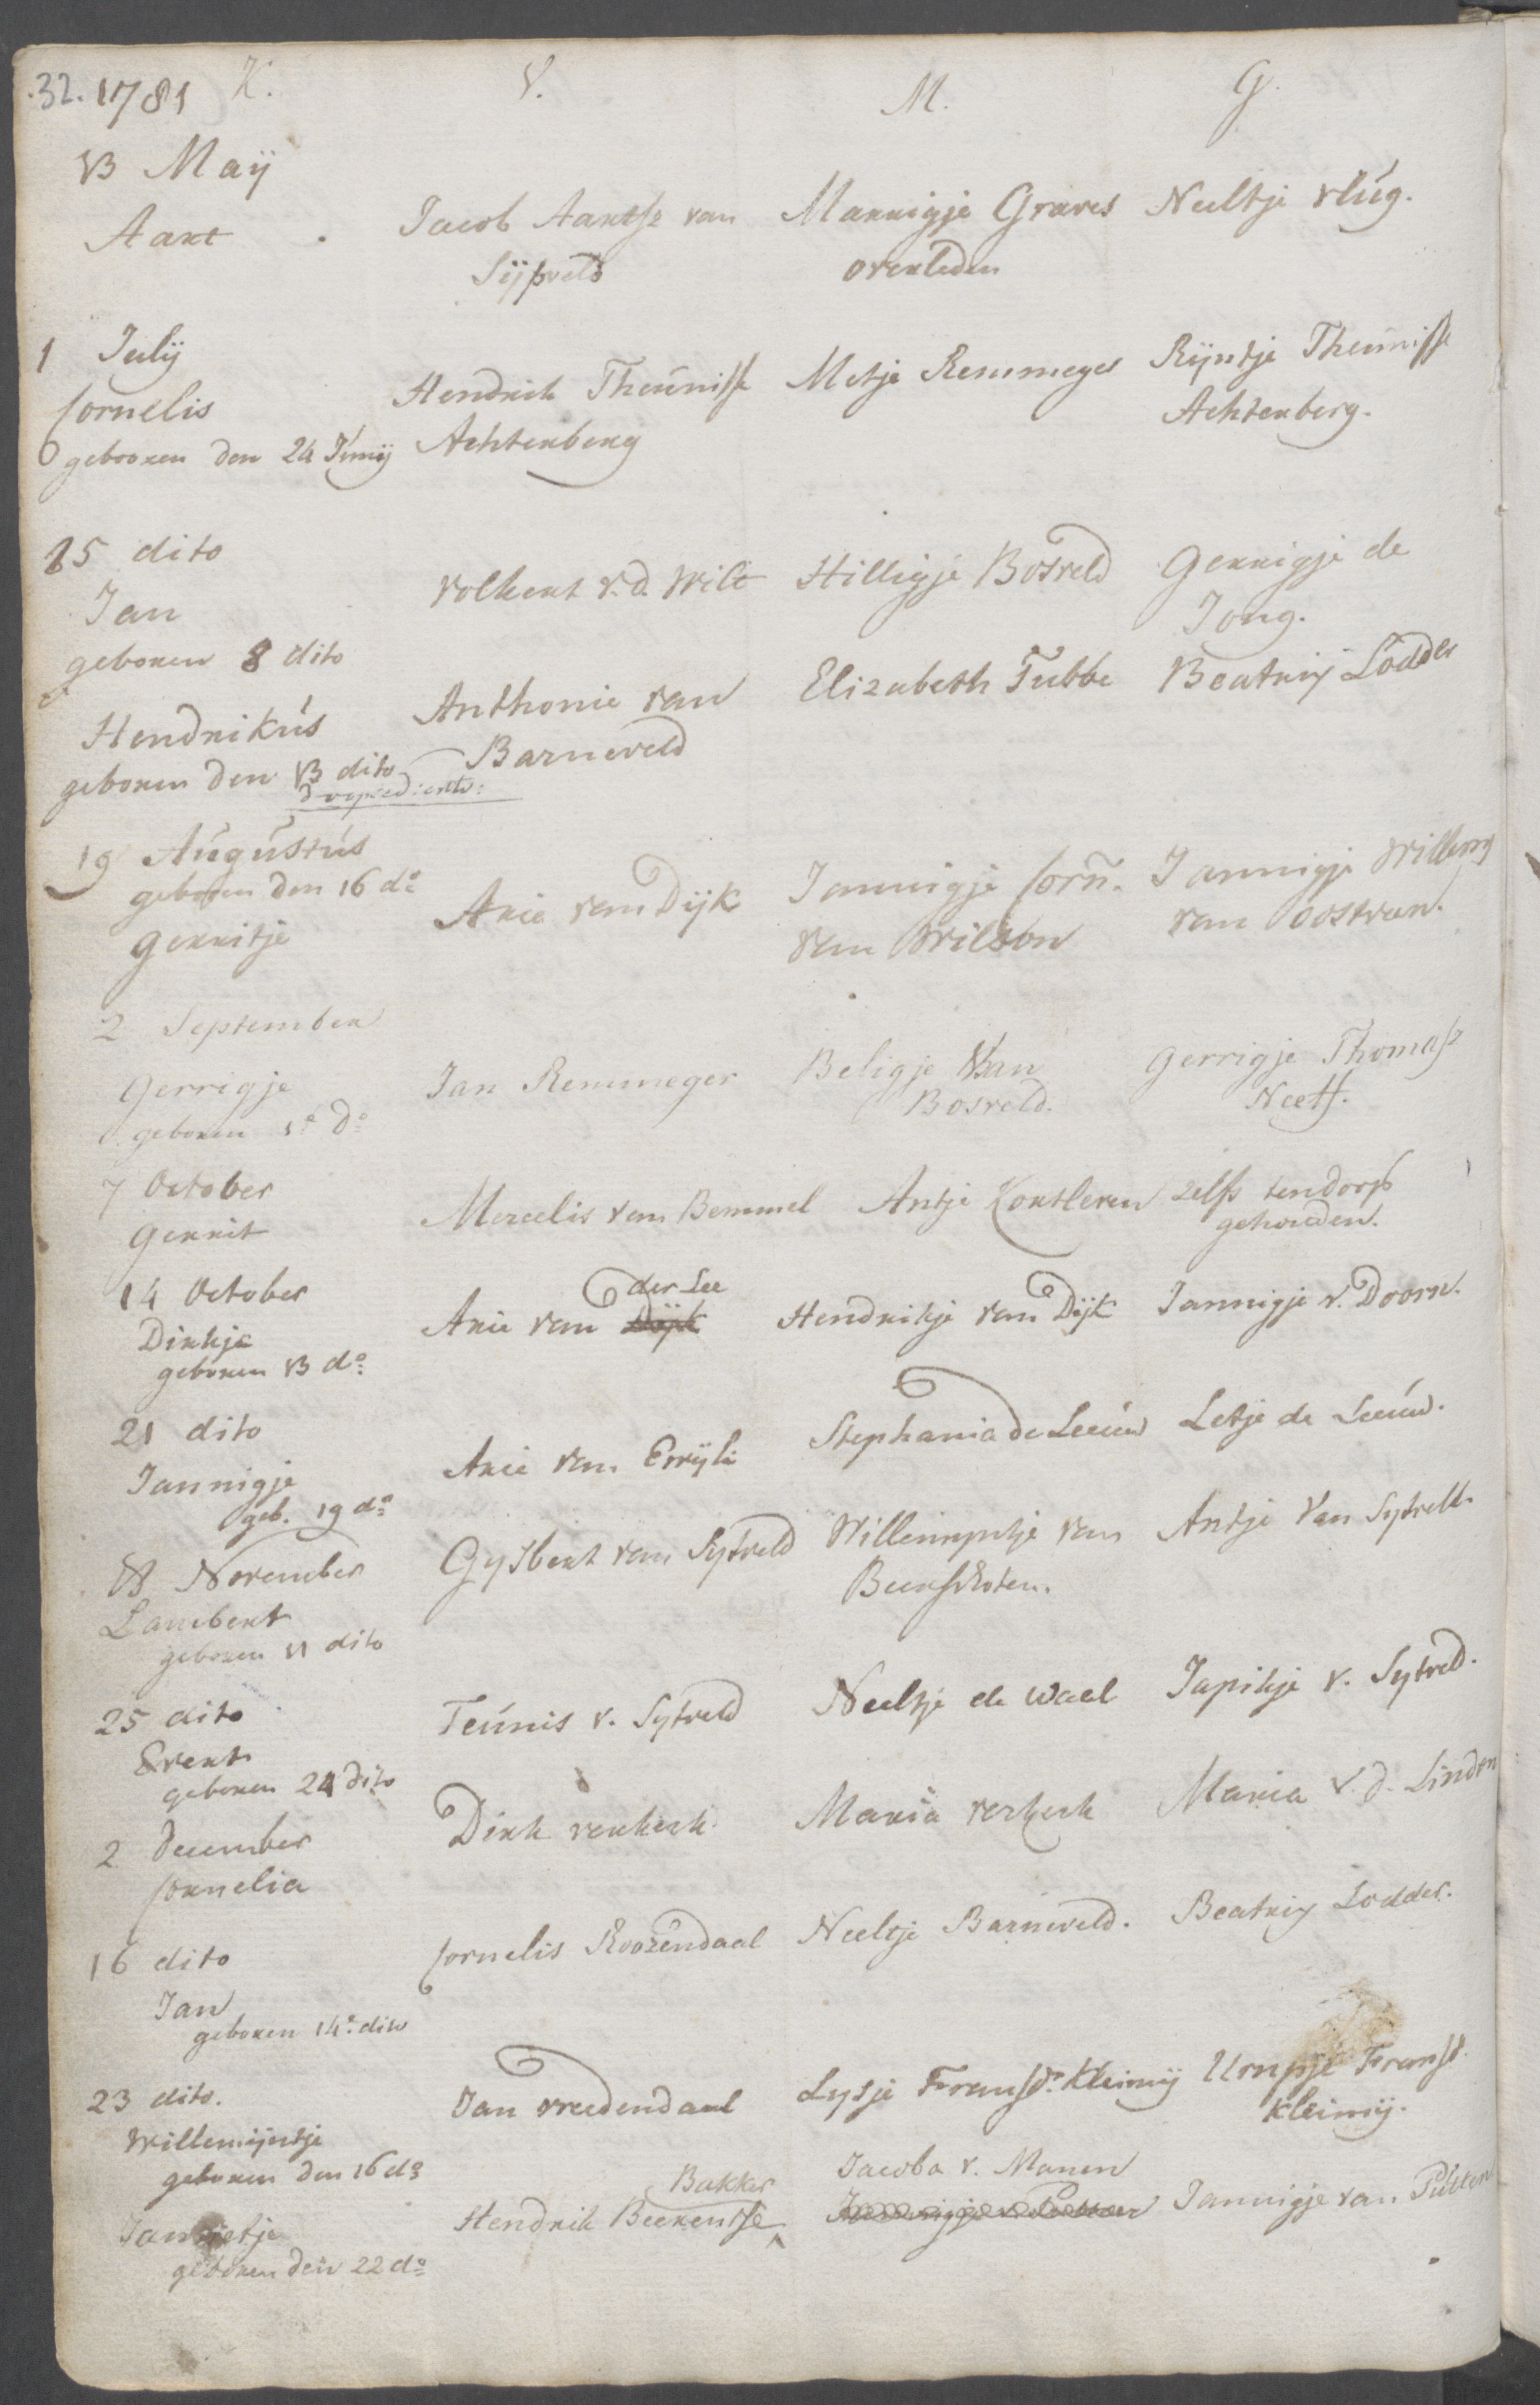 32. 1781 K. V. M. G.
13 Maij
Aart Jacob Aartse van Marrigje Graves Neeltje Vlúg.
Sijtsveld overleden
1 Julij
Cornelis Hendrik Theúnisse Metje Remmeger Rijntje Theúnisse
geboren den 24 Júnij Achterberg Achterberg.
15 dito
Jan Volkert v.d. Wilt Hilligje Bosveld Gerrigje de
geboren 8 dito Jong.
Hendrikús Anthonie van Elizabeth Tubbe Beatrix Lodder
geboren den 13 dito Barneveld
19 Aúgústús
geboren den 16 do Arie van Dijk Jannigje Corn. Jannigje Willems
Gerritje van Wilson van Oostveen.
2 September
Gerrigje Jan Remmeger Beligje Van Gerrigje Thomasz
geboren 1e do Bosveld. Neets.
7 October
Gerrit Mercelis van Bemmel Antje Kortleven zelfs ten doop
gehouden.
14 October der Lee
Dirkje Arie van Dijk Hendrikje van Dijk Jannigje v. Doorn.
geboren 13 do
21 dito
Jannigje Arie van Ewijk Stephania de Leeúw Letje de Leeúw.
geb. 19 do
18 November Gysbert van Sytveld Willempntje van Antje Van Sytveld.
Lambert Beekschoten.
geboren 11 dito
25 dito Teúnis v. Sytveld Neeltje de Wael Japikje v. Sytveld.
Evert
geboren 24 dito
2 December Dirk Verkerk Maria Verkerk Maria v.d. Linden
Cornelia
16 dito Cornelis Roozendaal Neeltje Barneveld. Beatrix Lodder.
Jan
geboren 14e dito
23 dito. Jan Vreedendaal Lysje Fransdr. Kleinij Frans
Willemijntje Kleinij.
geboren den 16 do
Bakker Jacoba v. Manen
Hendrik Beerentse Jannigje v. Putten Jannigje van Pútten
geboren den 22 do